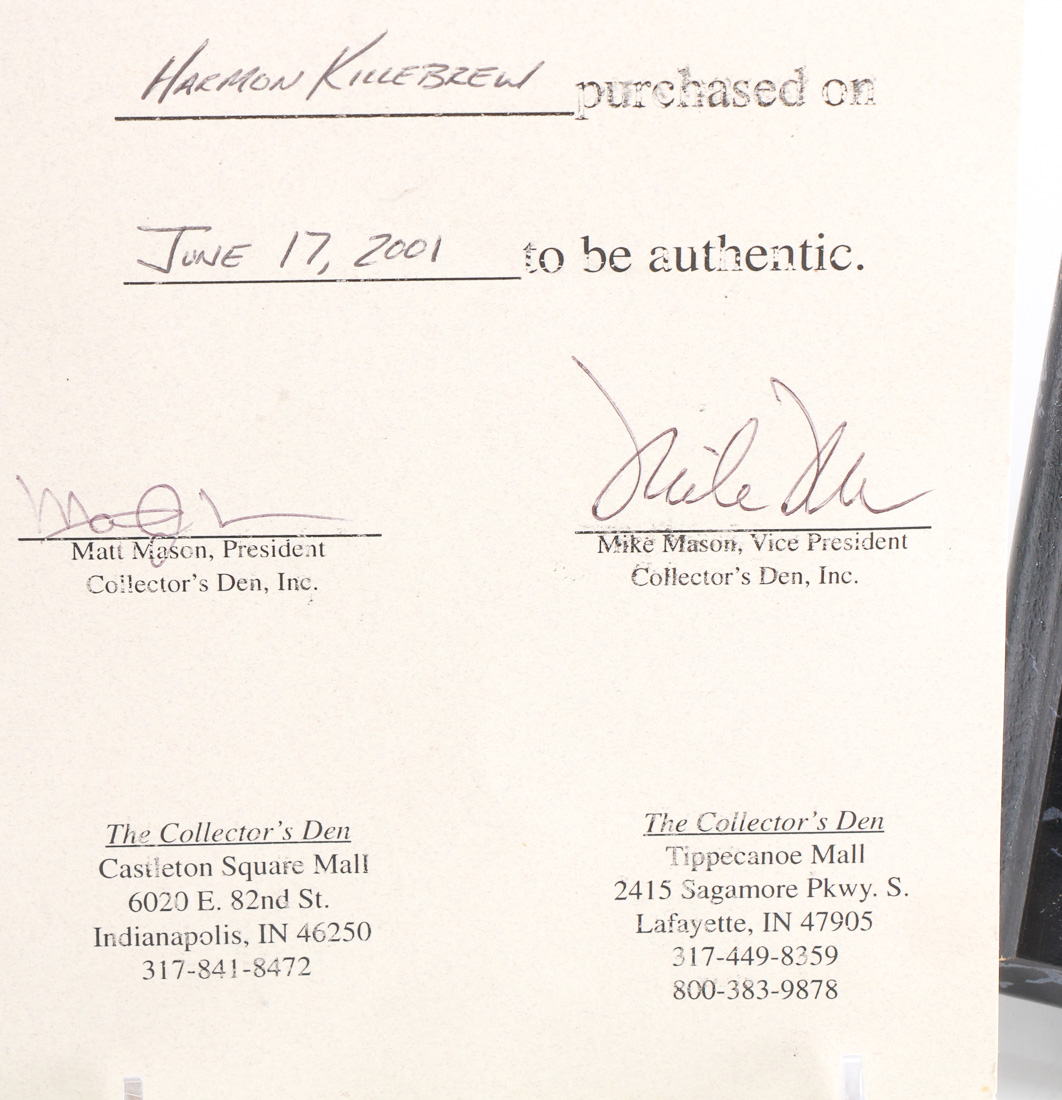 HARMON KILLEBREW purchased on
JUNE 17, 2001 to be authentic.
Matt Mason, President
Collector's Den, Inc.
Mike Mason, Vice President
Collector's Den, Inc.
The Collector's Den
Castleton Square Mall
6020 E. 82nd St.
Indianapolis, IN 46250
317-841-8472
The Collector's Den
Tippecanoe Mall
2415 Sagamore Pkwy. S.
Lafayette, IN 47905
317-449-8359
800-383-9878